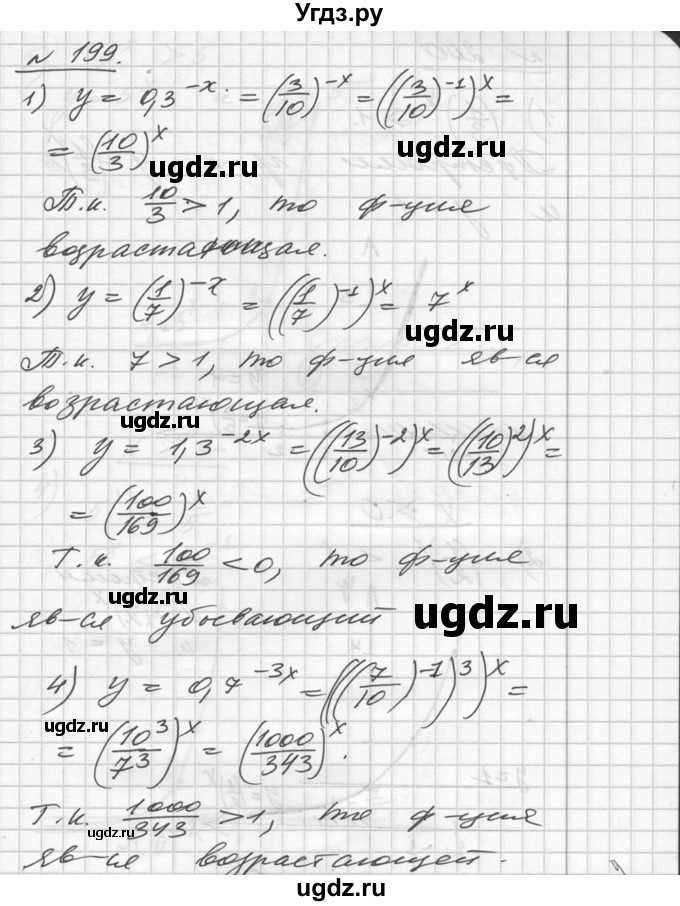 Угдз.ру
№ 199.
1) y = 0,3^{-x} = (3/10)^{-x} = ((3/10)^{-1})^x =
= (10/3)^x
ugdz.ru
ugdz.ru
Т.к. 10/3 > 1, то ф-ция
возрастающая.
2) y = (1/7)^{-x} = ((1/7)^{-1})^x = 7^x
ugdz.ru
Т.к. 7 > 1, то ф-ция яв-ся
возрастающая.
ugdz.ru
3) y = 1,3^{-2x} = ((13/10)^{-2})^x = ((10/13)^2)^x =
= (100/169)^x
Т.к. 100/169 < 0, то ф-ция
ugdz.ru
ugdz.ru
яв-ся убывающий
4) y = 0,7^{-3x} = (((7/10)^{-1})^3)^x =
ugdz.ru
= (10^3/7^3)^x = (1000/343)^x.
Т.к. 1000/343 > 1, то ф-ция
ugdz.ru
яв-ся возрастающей.
ugdz.ru